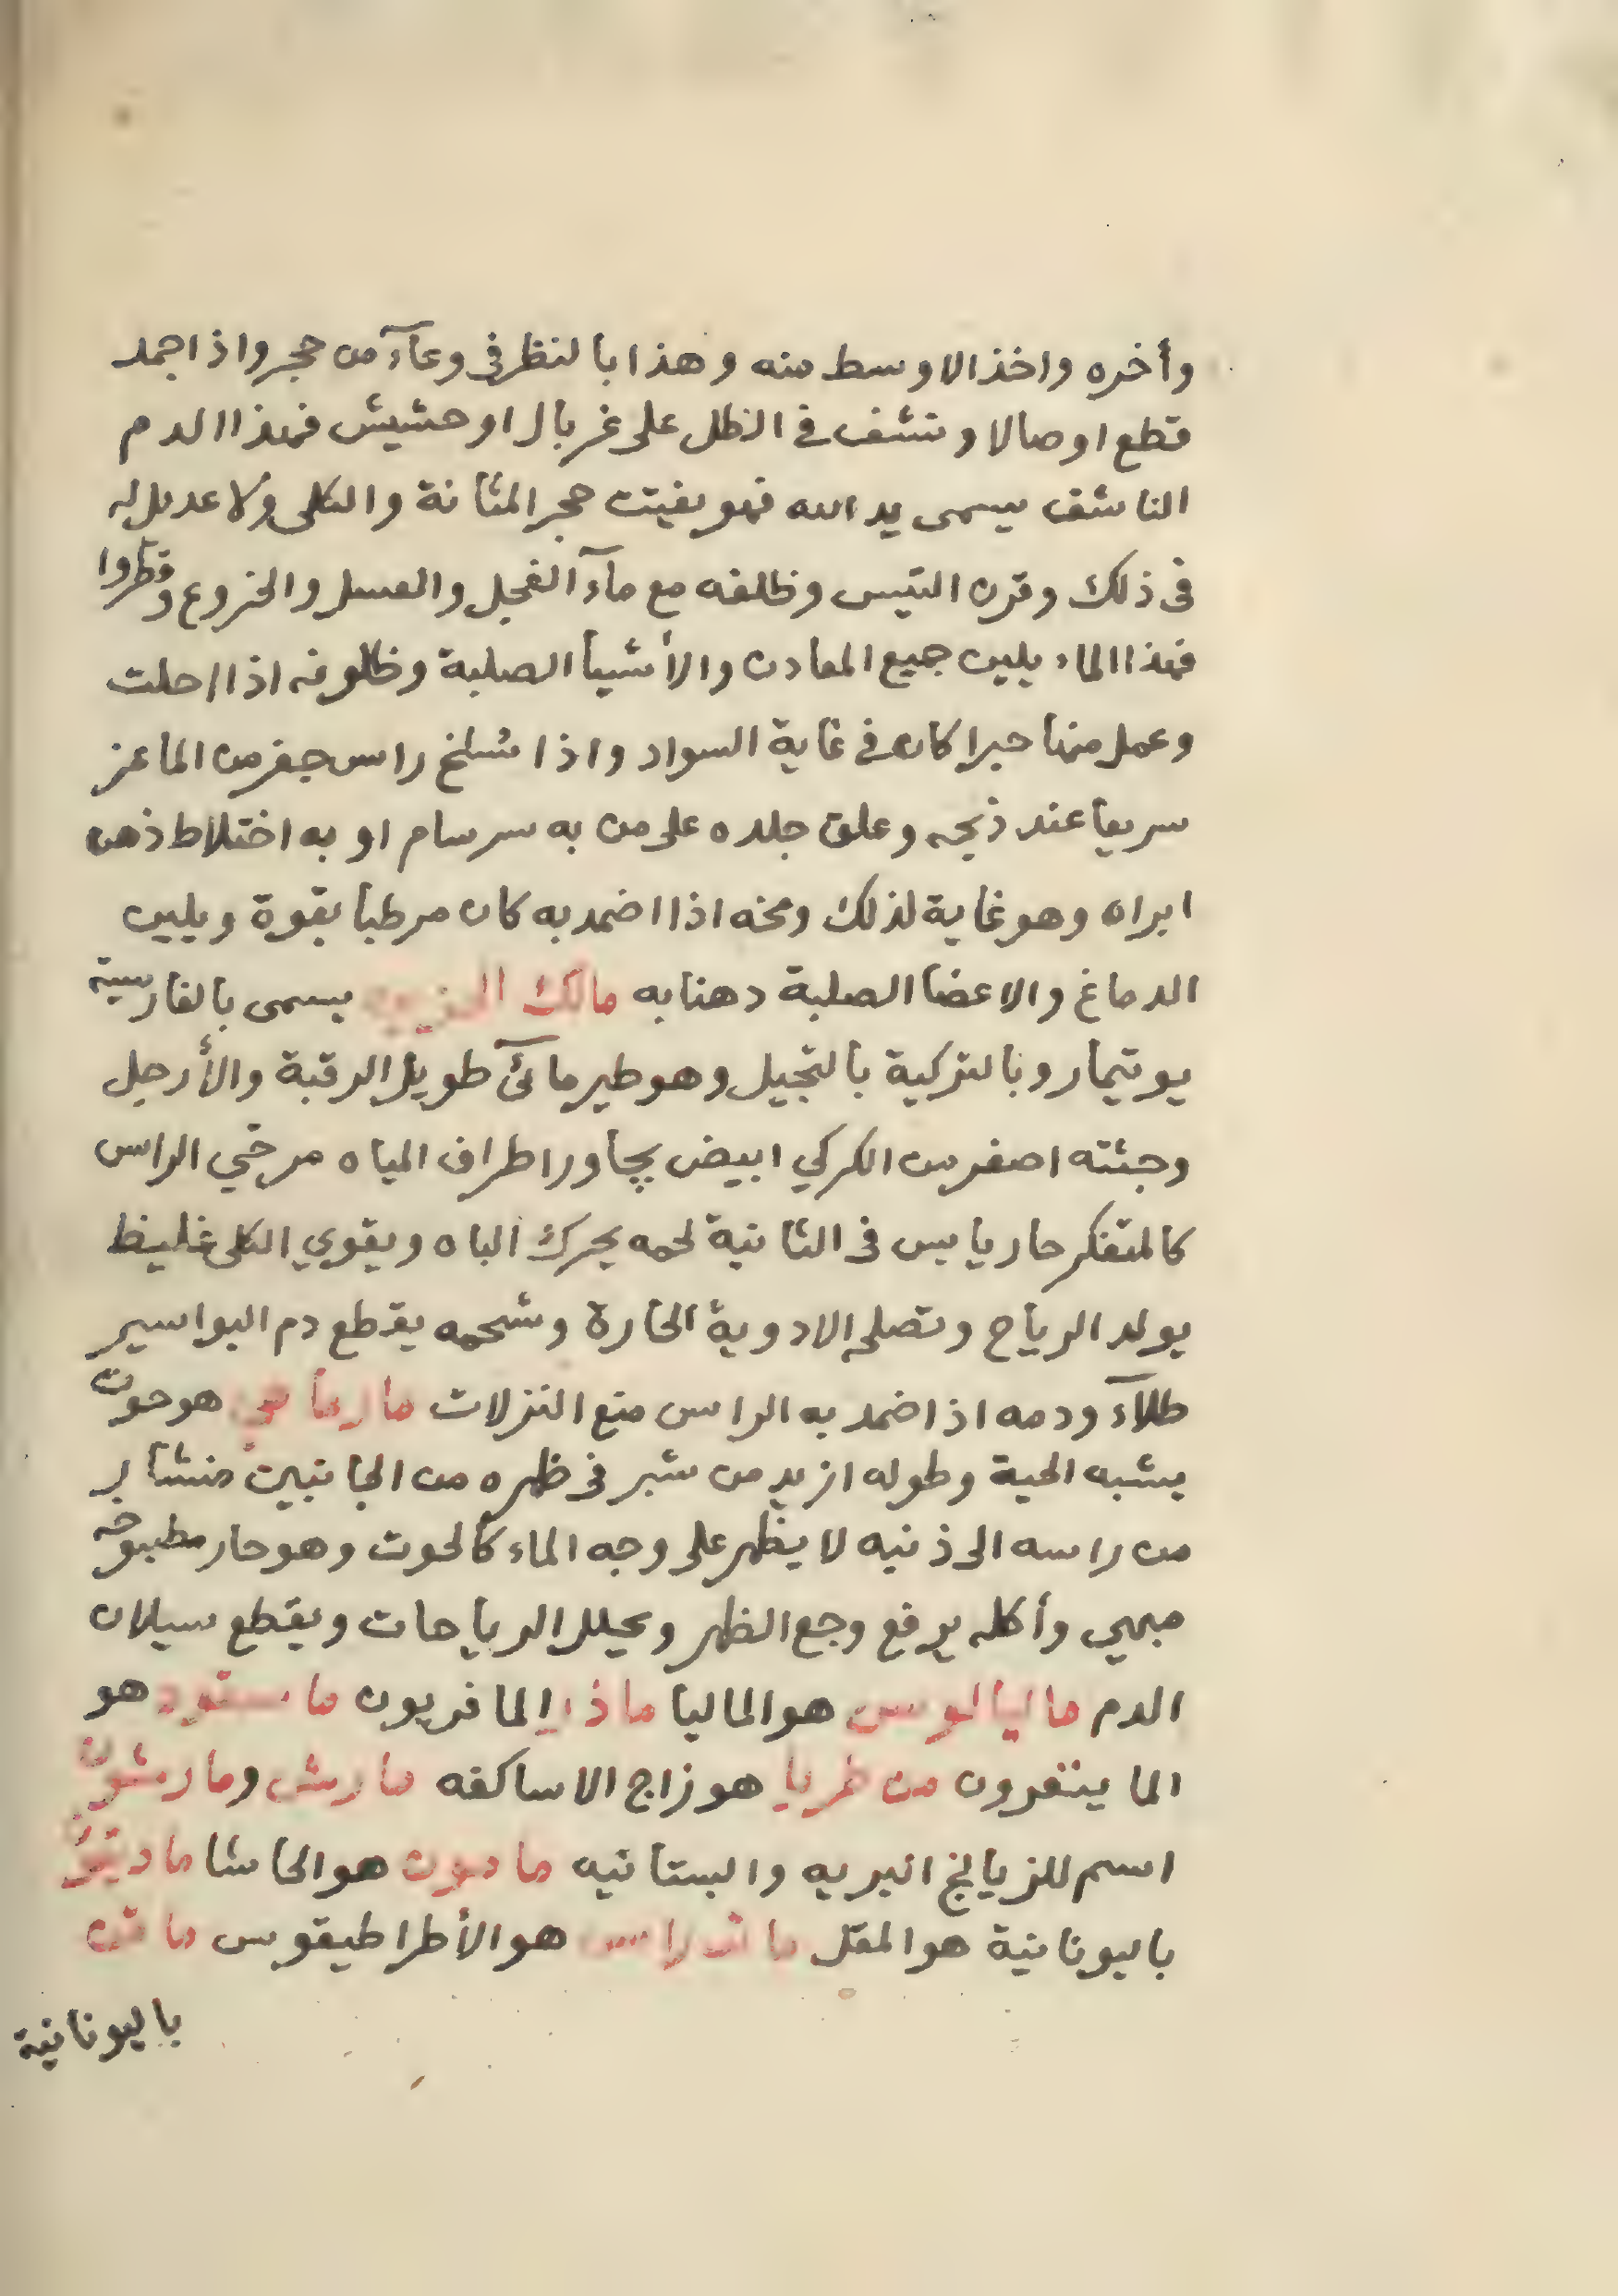 وأخره واخذ الاوسط منه وهذا بالنظر في وعآء من حجر واذا جمد
قطع اوصالا ونشف في الظل على غربال او حشيش فهذا الدم
الناشف يسمى يد الله فهو يفيتت حجر المثانة والكلى ولا عديل له
في ذلك وقرن التيس وظلفه مع مآء الفجل والعسل والخروع وقطروا
فهذا الماء يلين جميع المعادن والأشيأ الصلبة وظلوفه اذا احلت
وعمل منها حبرا كان في غاية السواد واذا سلخ راس جفر من الماعز
سريعا عند ذبحه وعلق جلده على من به سرسام او به اختلاط ذهن
ابراه وهو غاية لذلك ومخه اذا اضمد به كان مرطبا بقوة ويلين
الدماغ والاعضا الصلبة دهنا به مالك الحزين يسمى بالفارسية
بوتيمار وبالتركية بالتجيل وهو طير مائي طويل الرقبة والأرجل
وجثته اصغر من الكركي ابيض يجاور اطراف المياه مرخي الراس
كالمتفكر حار يابس في الثانية لحمه يحرك الباه ويقوي الكلى غليظ
يولد الرياح وتصلحه الادوية الحارة وشحمه يقطع دم البواسير
طلآء ودمه اذا ضمد به الراس منع النزلات مارماهي هو حوت
يشبه الحية وطوله ازيد من شبر في ظهره من الجانبين منشار
من راسه الى ذنبه لا يظهر على وجه الماء كالحوت وهو حار مطبوخه
مبهي وأكله يرفع وجع الظهر ويحلل الرياحات ويقطع سيلان
الدم ماليالوس هو الماليا ماذر المافريون ما هو
الما ينفرون من طريا هو زاج الاساكفه مارش ومارشون
اسم للزيانج البريه والبستانيه مادون هو الحاشا
باليونانية هو المقل هو الأطراطيقوس
باليونانية